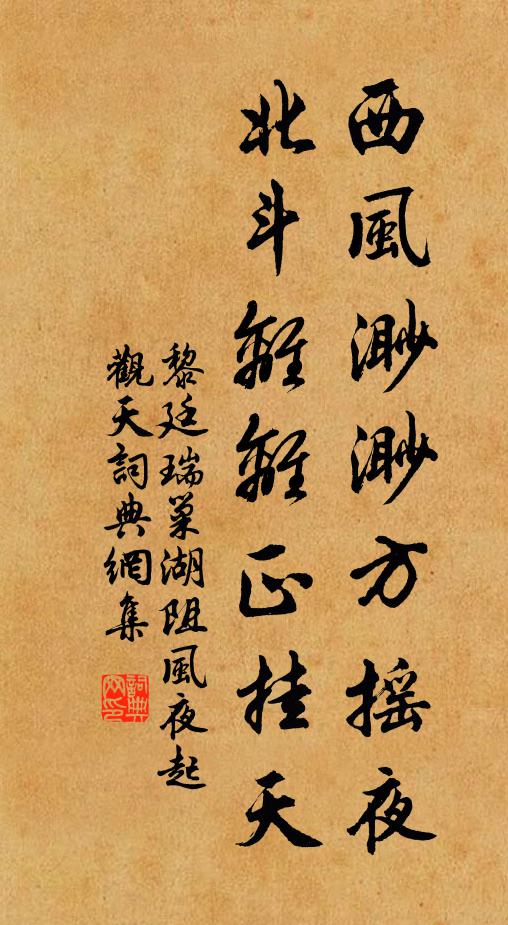 西風渺渺方摇夜
北斗離離正挂天
黎廷瑞巢湖阻風夜起
觀天詞典網集
詞典
网印